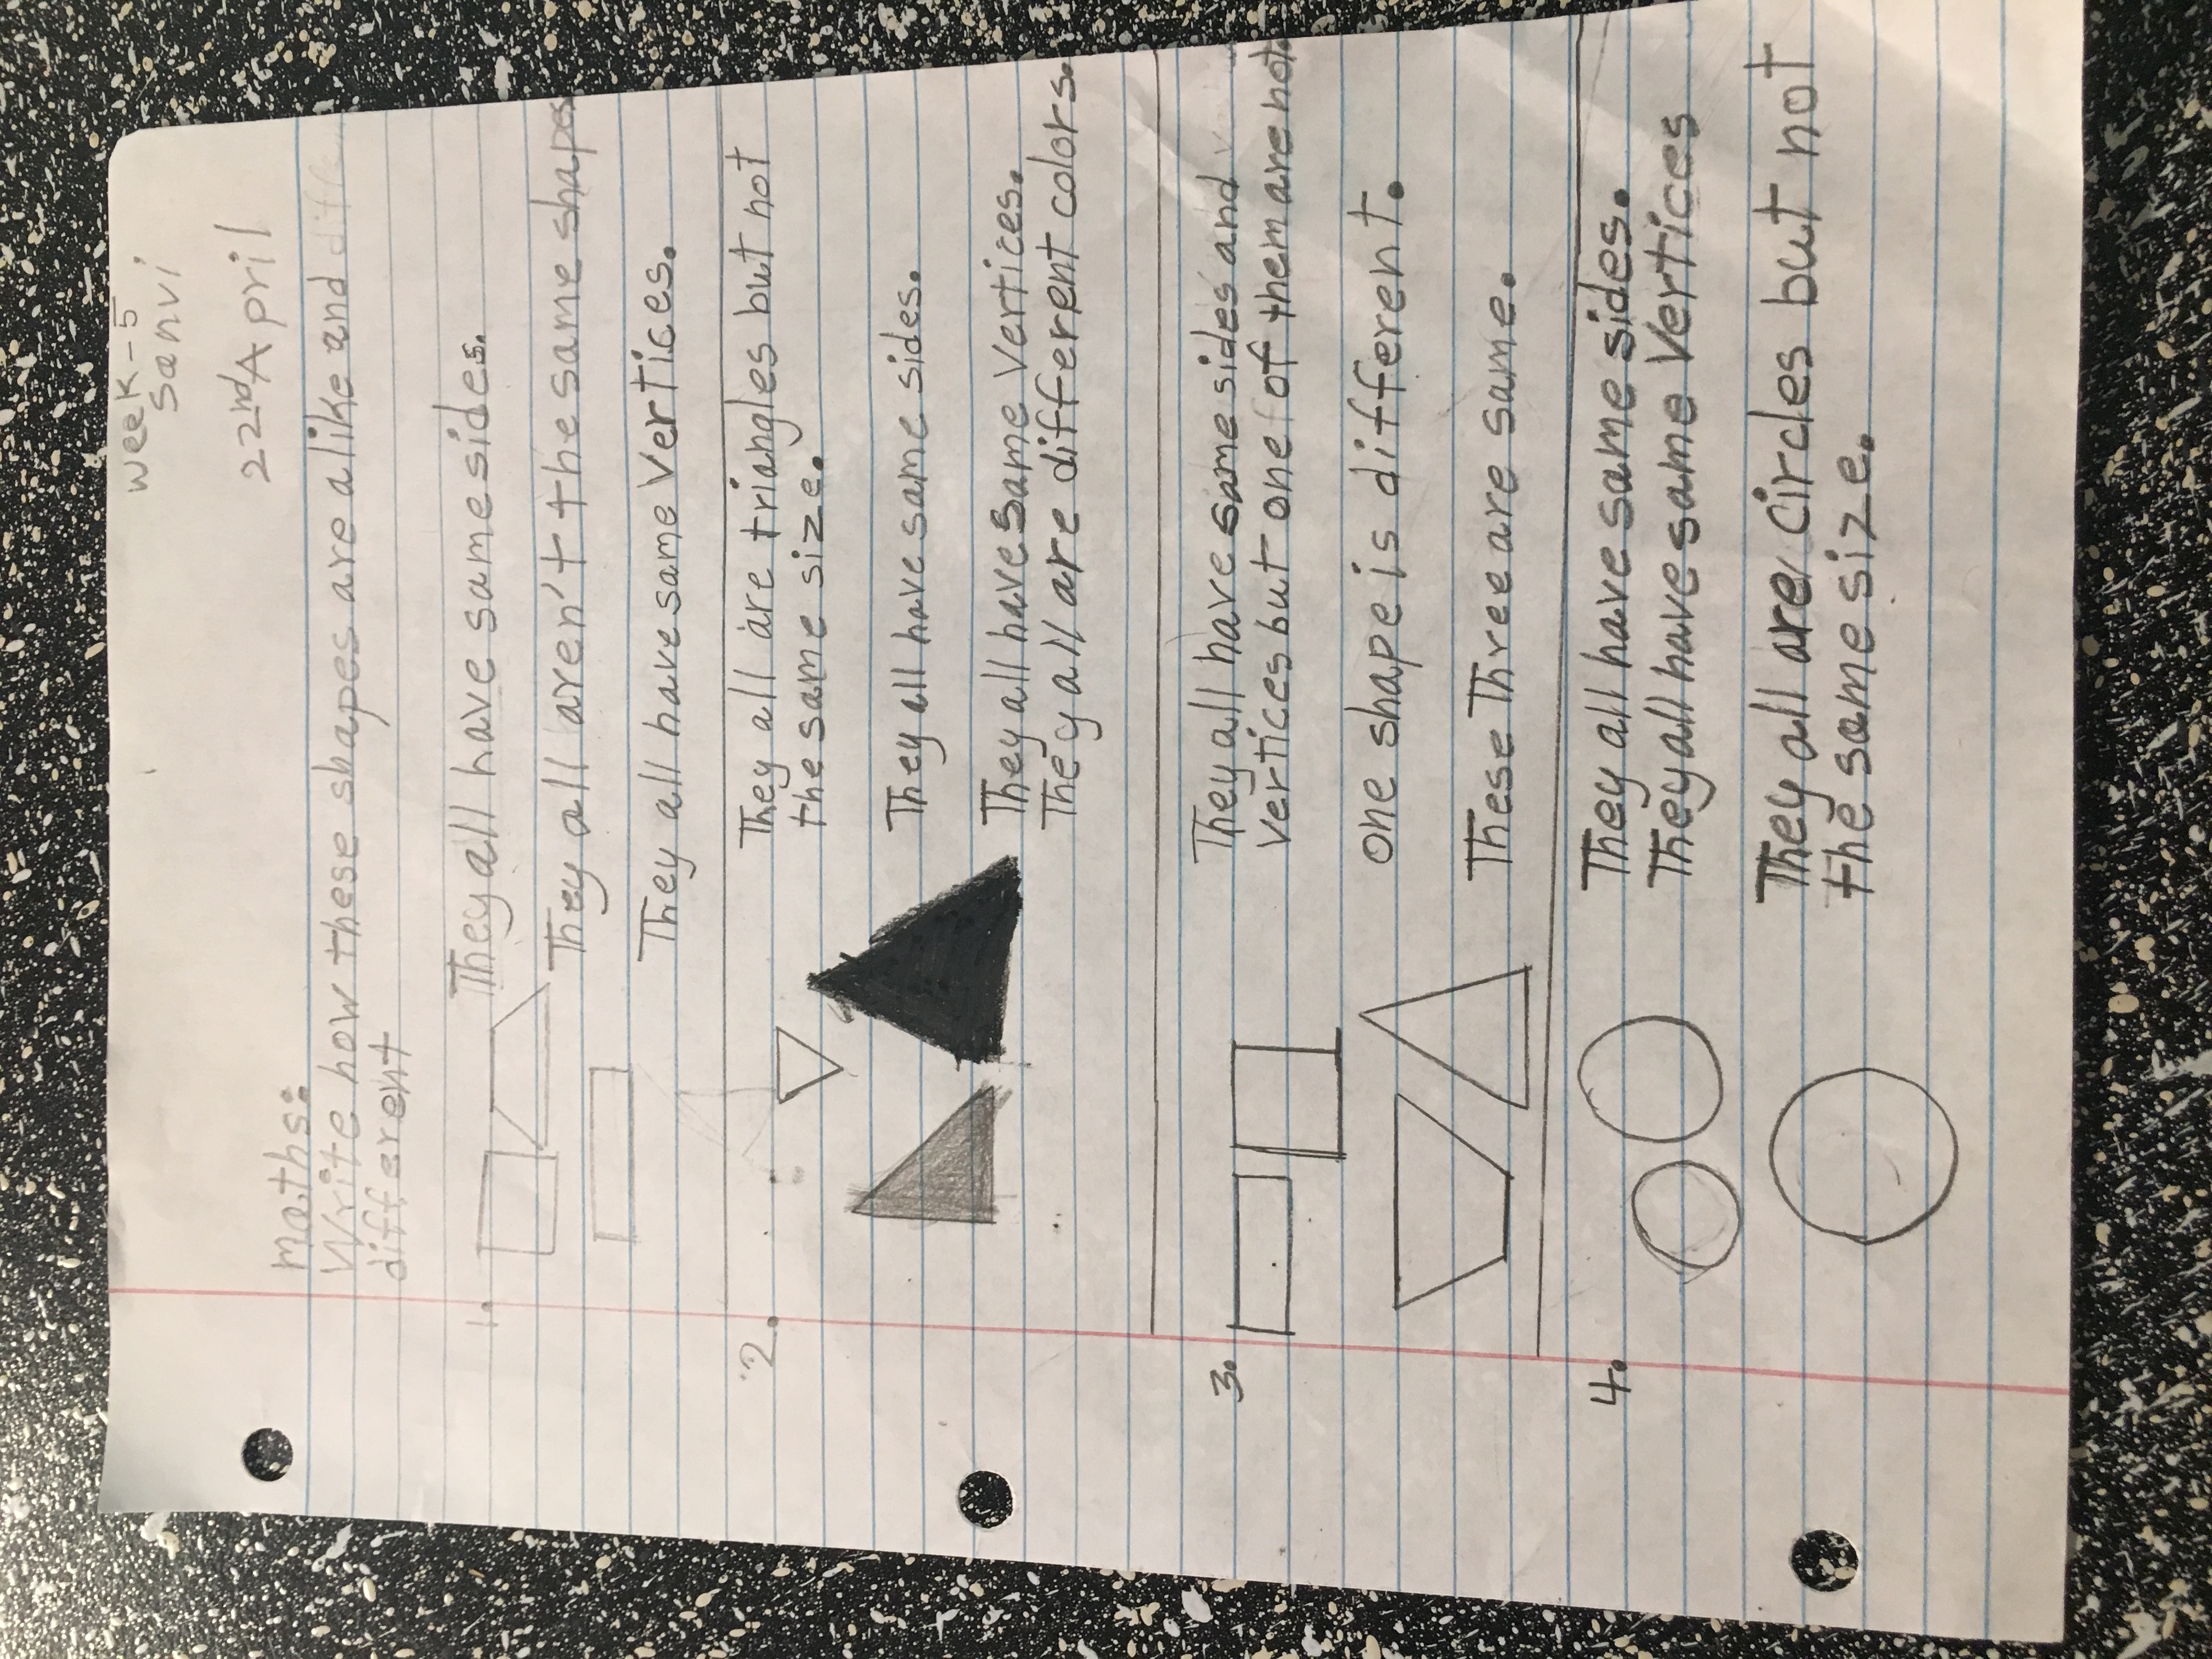 week-5.
Sanvi
22nd April
maths:
Write how these shapes are alike and
different
1. They all have same sides.
They all aren't the same shapes
They all have same Vertices.
2. They all are triangles but not
the same size.
They all have same sides.
They all have same Vertices.
They all are different colors.
3. They all have same sides and
vertices but one of them are not.
one shape is different.
These Three are same.
4. They all have same sides.
They all have same Vertices
They all are circles but not
the same size.